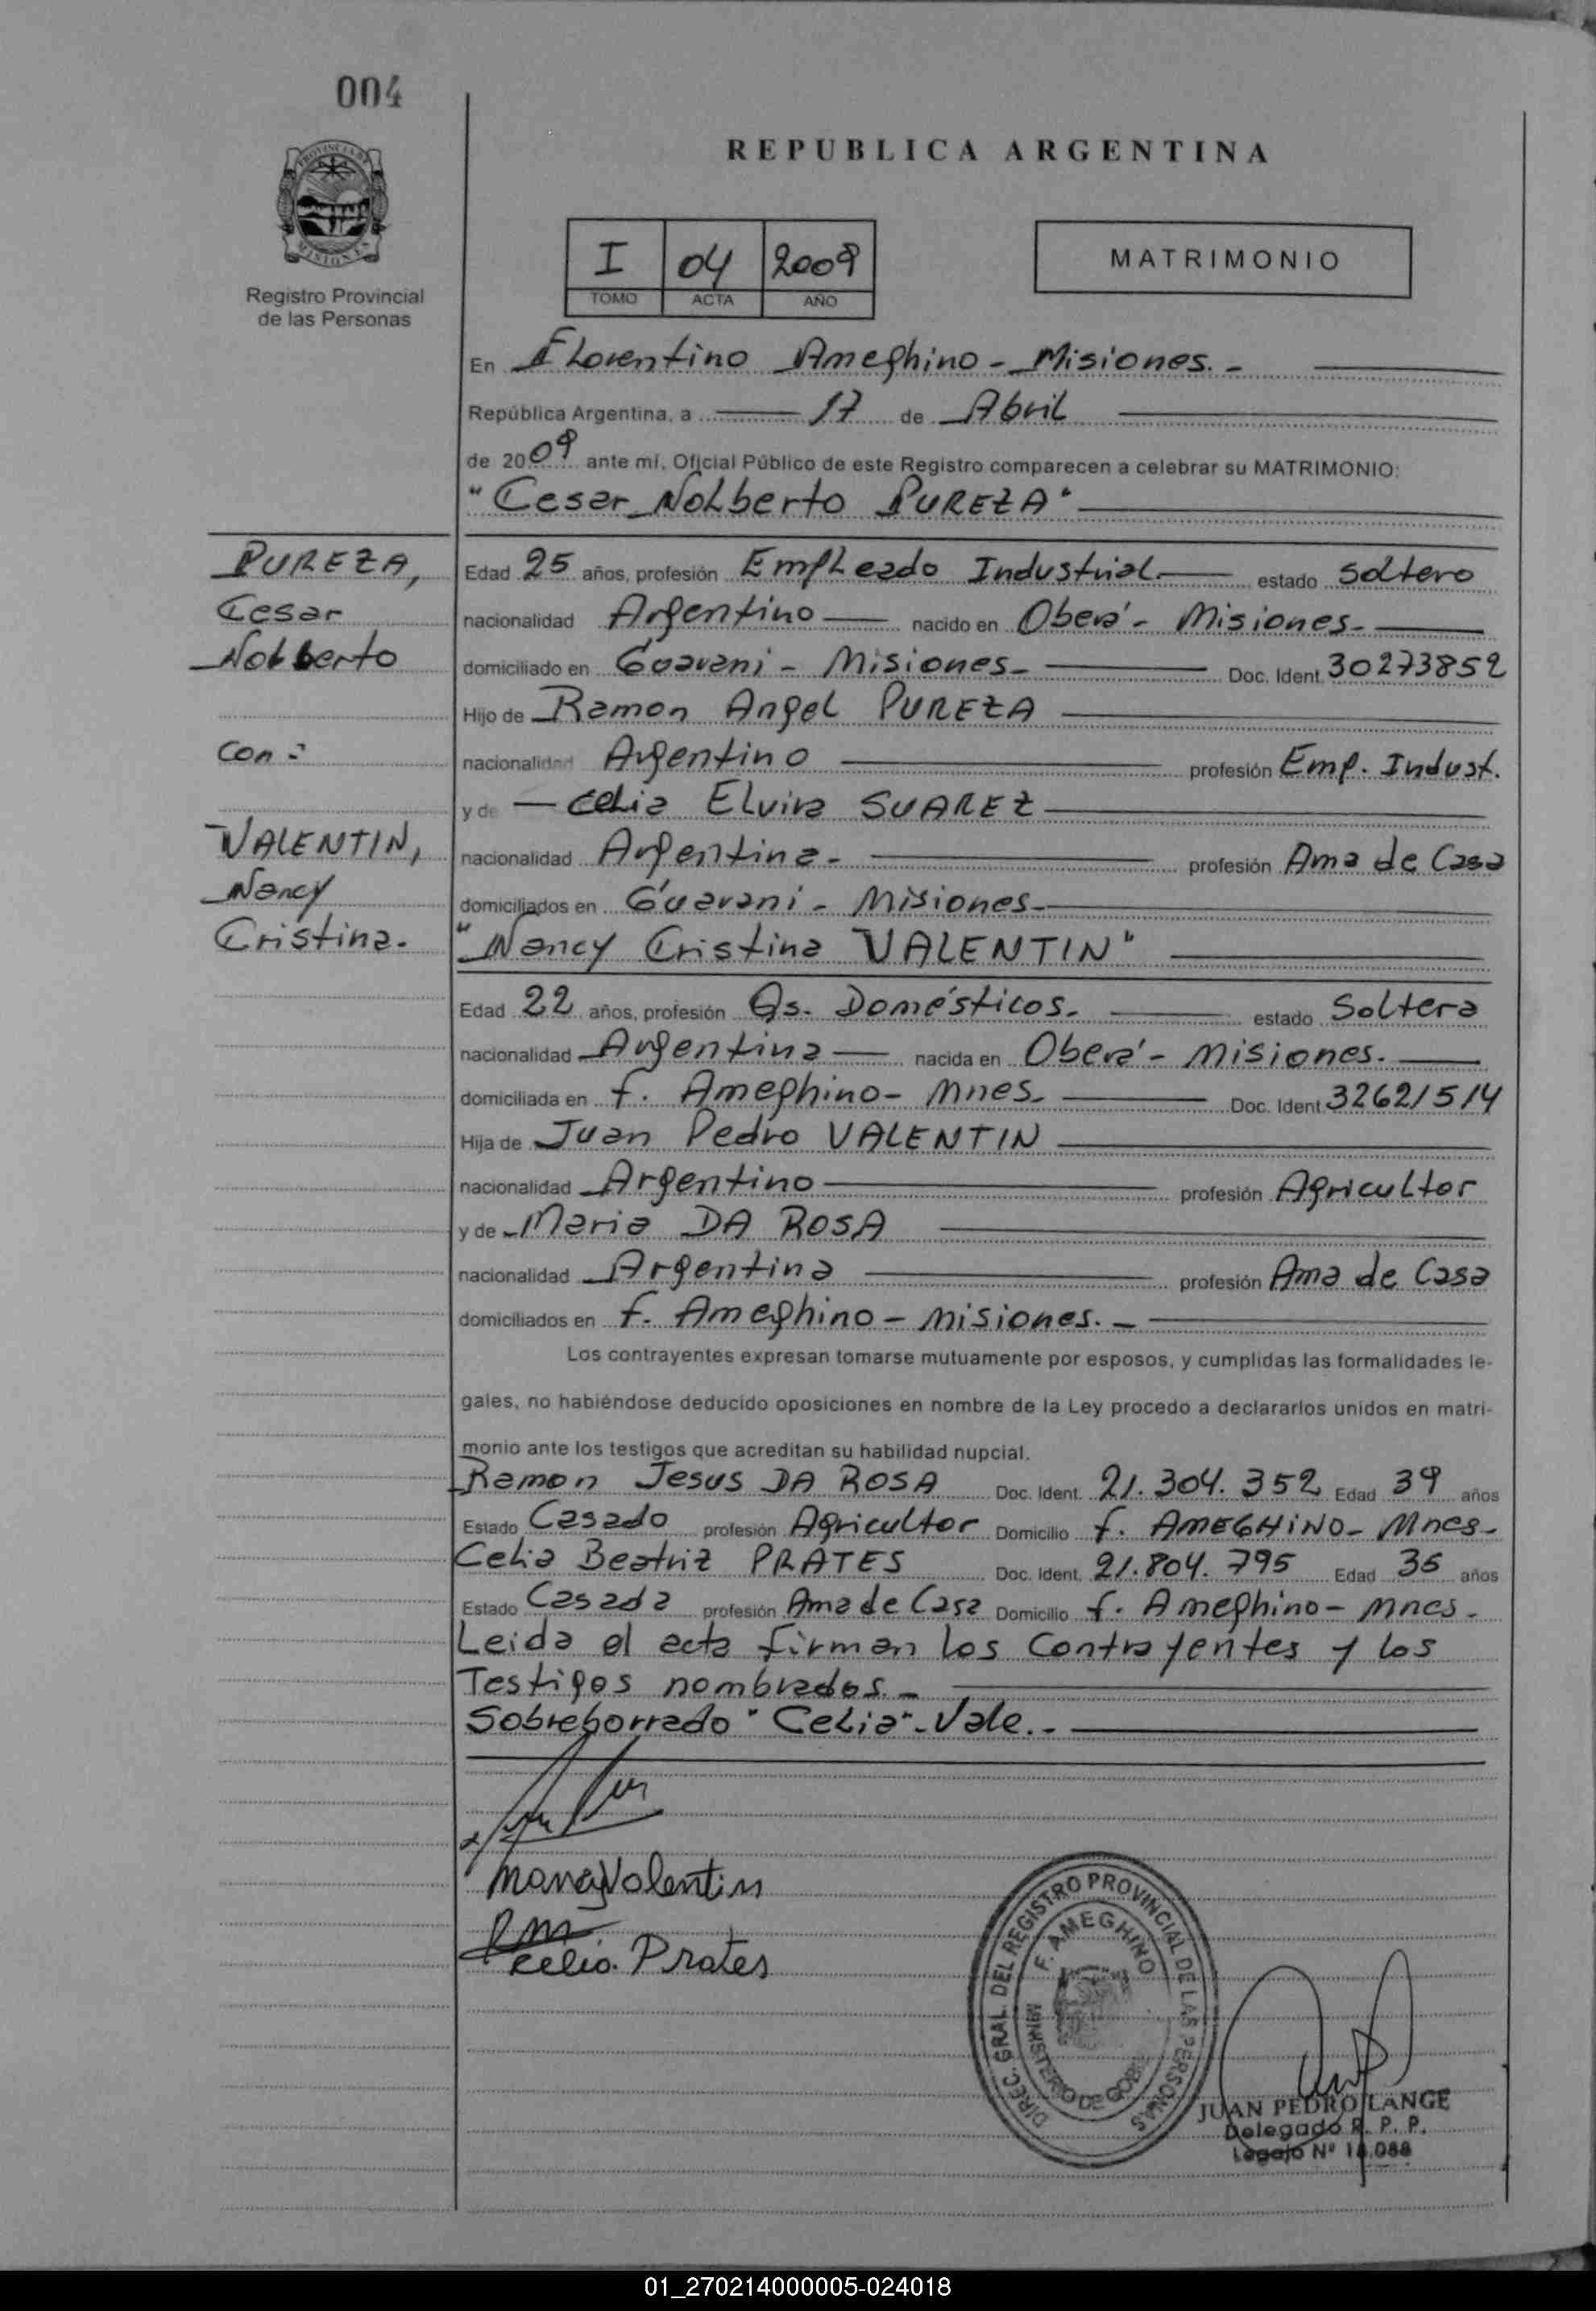 004
REPUBLICA ARGENTINA
PROVINCIA DE
MISIONES
Registro Provincial
de las Personas
I 04 2009
TOMO ACTA AÑO
MATRIMONIO
En Florentino Ameghino - Misiones. -
República Argentina, a 17 de Abril
de 2009 ante mí, Oficial Público de este Registro comparecen a celebrar su MATRIMONIO:
"Cesar Nolberto PUREZA"
PUREZA,
Cesar
Nolberto
con :
VALENTIN,
Nancy
Cristina.
Edad 25 años, profesión Empleado Industrial. estado Soltero
nacionalidad Argentino nacido en Oberá - Misiones.
domiciliado en Guaraní - Misiones. Doc. Ident. 30273852
Hijo de Ramon Angel PUREZA
nacionalidad Argentino profesión Emp. Indust.
y de Celia Elvira SUAREZ
nacionalidad Argentina. profesión Ama de Casa
domiciliados en Guaraní - Misiones.
"Nancy Cristina VALENTIN"
Edad 22 años, profesión Qs. Domésticos. estado Soltera
nacionalidad Argentina nacida en Oberá - Misiones.
domiciliada en F. Ameghino - Mnes. Doc. Ident. 32621514
Hija de Juan Pedro VALENTIN
nacionalidad Argentino profesión Agricultor
y de Maria DA ROSA
nacionalidad Argentina profesión Ama de Casa
domiciliados en F. Ameghino - Misiones. -
Los contrayentes expresan tomarse mutuamente por esposos, y cumplidas las formalidades le-
gales, no habiéndose deducido oposiciones en nombre de la Ley procedo a declararlos unidos en matri-
monio ante los testigos que acreditan su habilidad nupcial.
Ramon Jesus DA ROSA Doc. Ident. 21.304.352 Edad 39 años
Estado Casado profesión Agricultor Domicilio F. AMEGHINO - Mnes.
Celia Beatriz PRATES Doc. Ident. 21.804.795 Edad 35 años
Estado Casada profesión Ama de Casa Domicilio F. Ameghino - Mnes.
Leida el acta firman los Contrayentes y los
Testigos nombrados. -
Sobreborrado "Celia". Vale. -
Nancy Valentin
Celia Prates
DIREC. GRAL. DEL REGISTRO PROVINCIAL DE LAS PERSONAS
F. AMEGHINO
MINISTERIO DE GOB.
JUAN PEDRO LANGE
Delegado R. P. P.
Legajo Nº
01_270214000005-024018